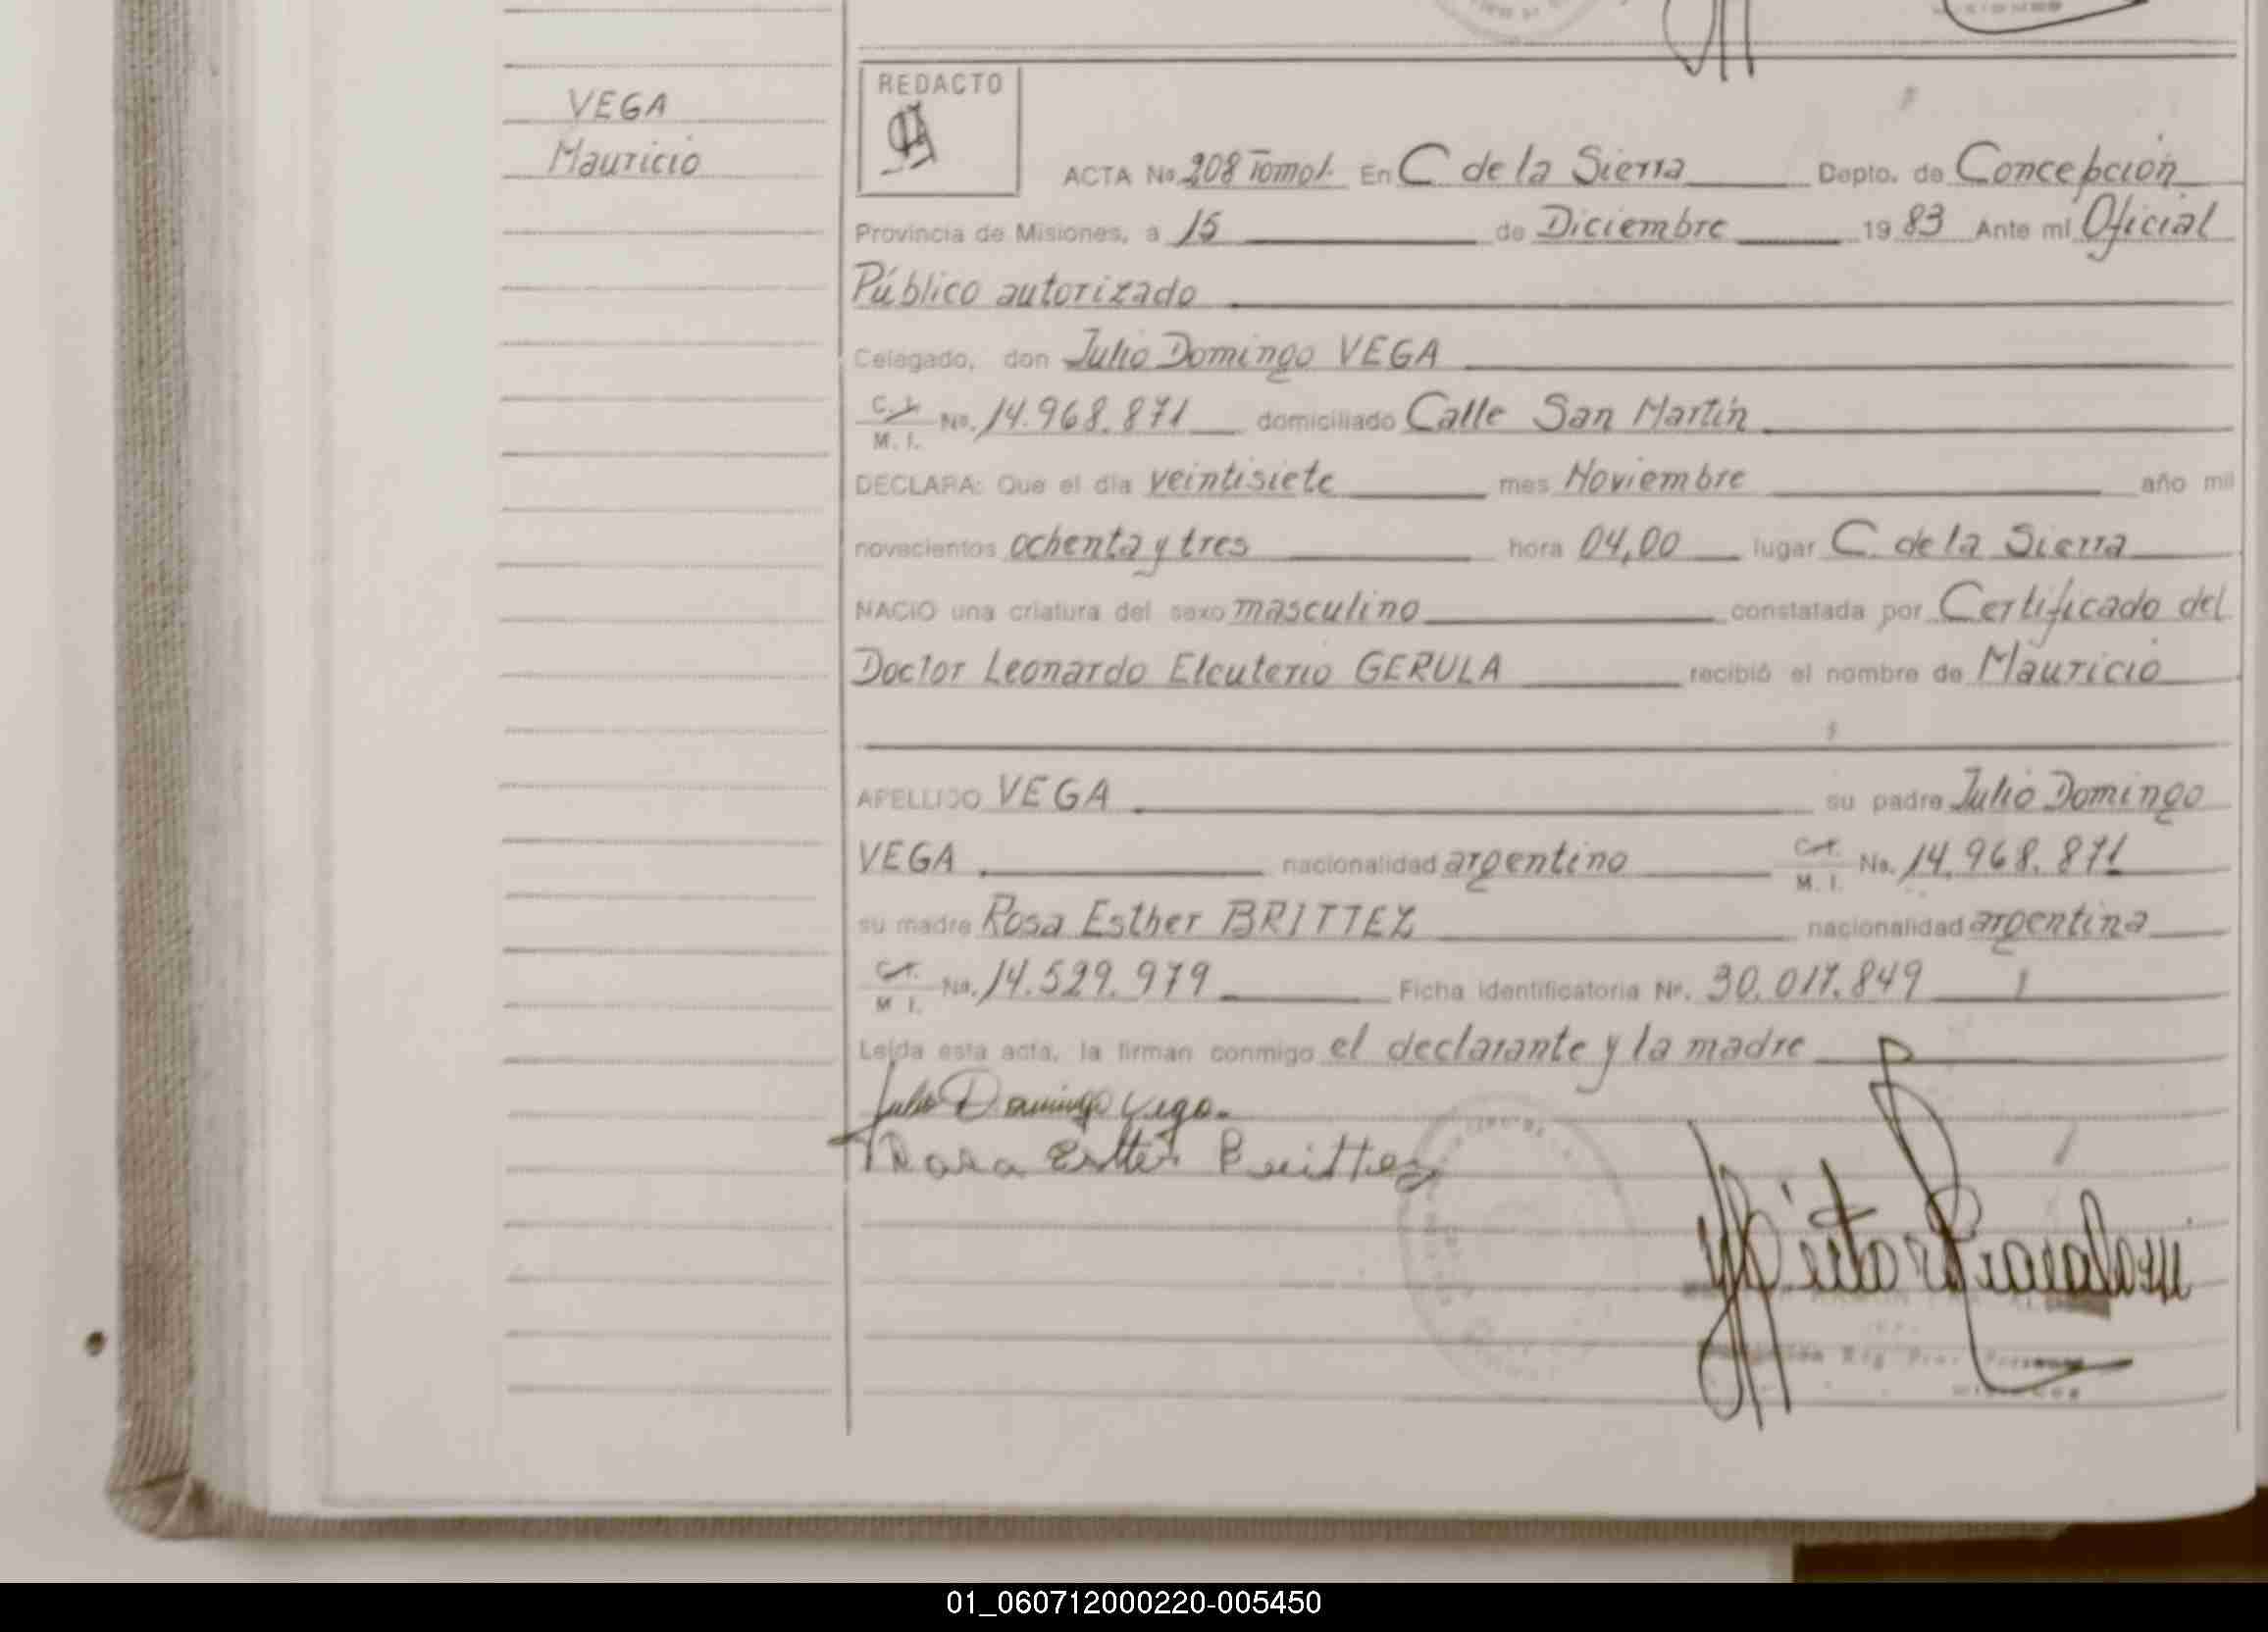 VEGA
Mauricio
REDACTO
ACTA No 208 Tomo I. En C de la Sierra Depto. de Concepción
Provincia de Misiones, a 15 de Diciembre 19 83 Ante mí Oficial
Público autorizado
Celegado, don Julio Domingo VEGA
C. I. M. I. No. 14.968.871 domiciliado Calle San Martín
DECLARA: Que el día veintisiete mes Noviembre año mil
novecientos ochenta y tres hora 04,00 lugar C. de la Sierra
NACIO una criatura del sexo masculino constatada por Certificado del
Doctor Leonardo Eleuterio GERULA recibió el nombre de Mauricio
APELLIDO VEGA su padre Julio Domingo
VEGA nacionalidad argentino C.I. M. I. No. 14.968.871
su madre Rosa Esther BRITTEZ nacionalidad argentina
C.I. M I. No. 14.529.979 Ficha identificatoria Nº. 30.017.849
Leída esta acta, la firman conmigo el declarante y la madre
Julio Domingo Vega.
Rosa Esther Brittez
01_060712000220-005450